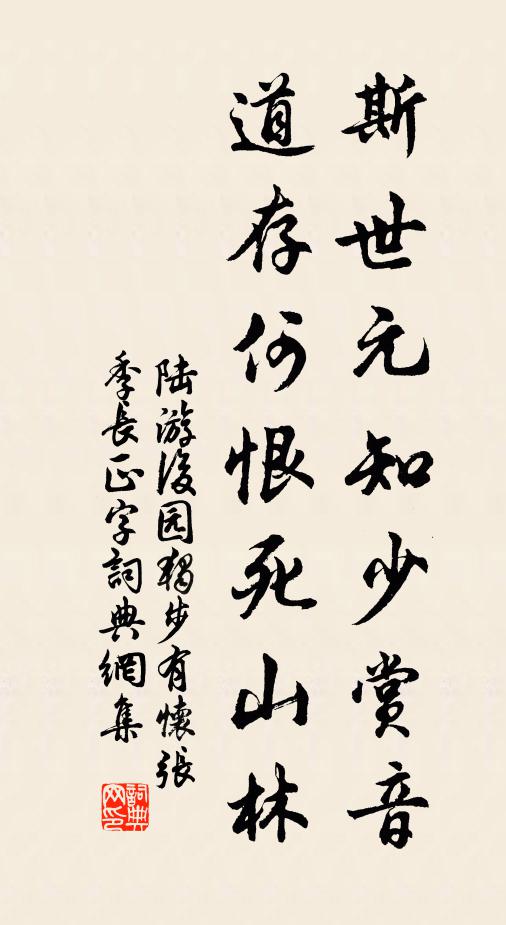 斯世元知少赏音
道存何恨死山林
陆游后园独步有怀张
季长正字詞典網集
詞典网印